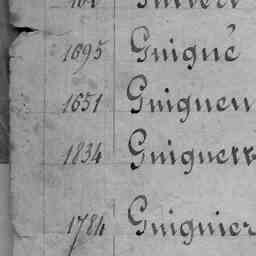 1695 Guigué
1651 Guigueu
1834 Guiguett
1784 Guignier